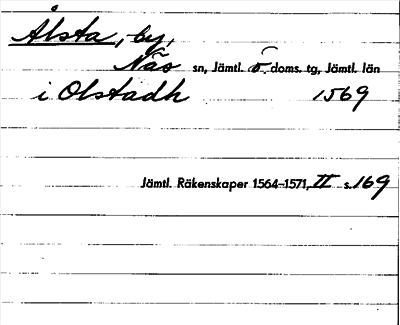 Ålsta, by,
Näs sn, Jämtl. ö. doms. tg, Jämtl. län
i Olstadh 1569
Jämtl. Räkenskaper 1564–1571, II s. 169